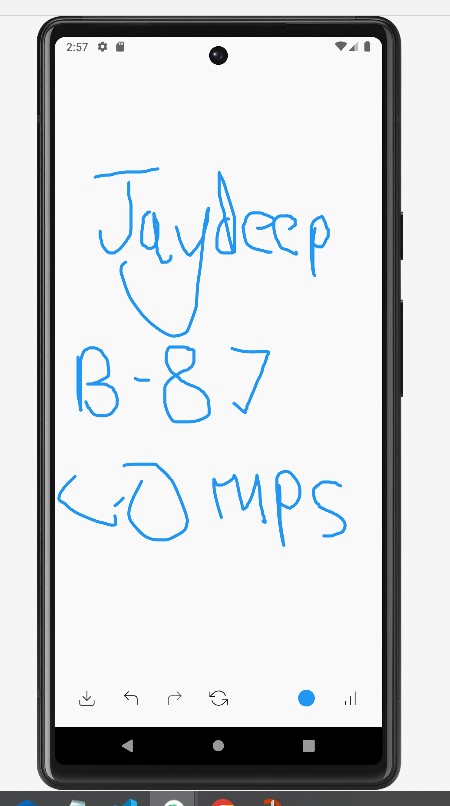 2:57
Jaydeep
B-87
COMPS